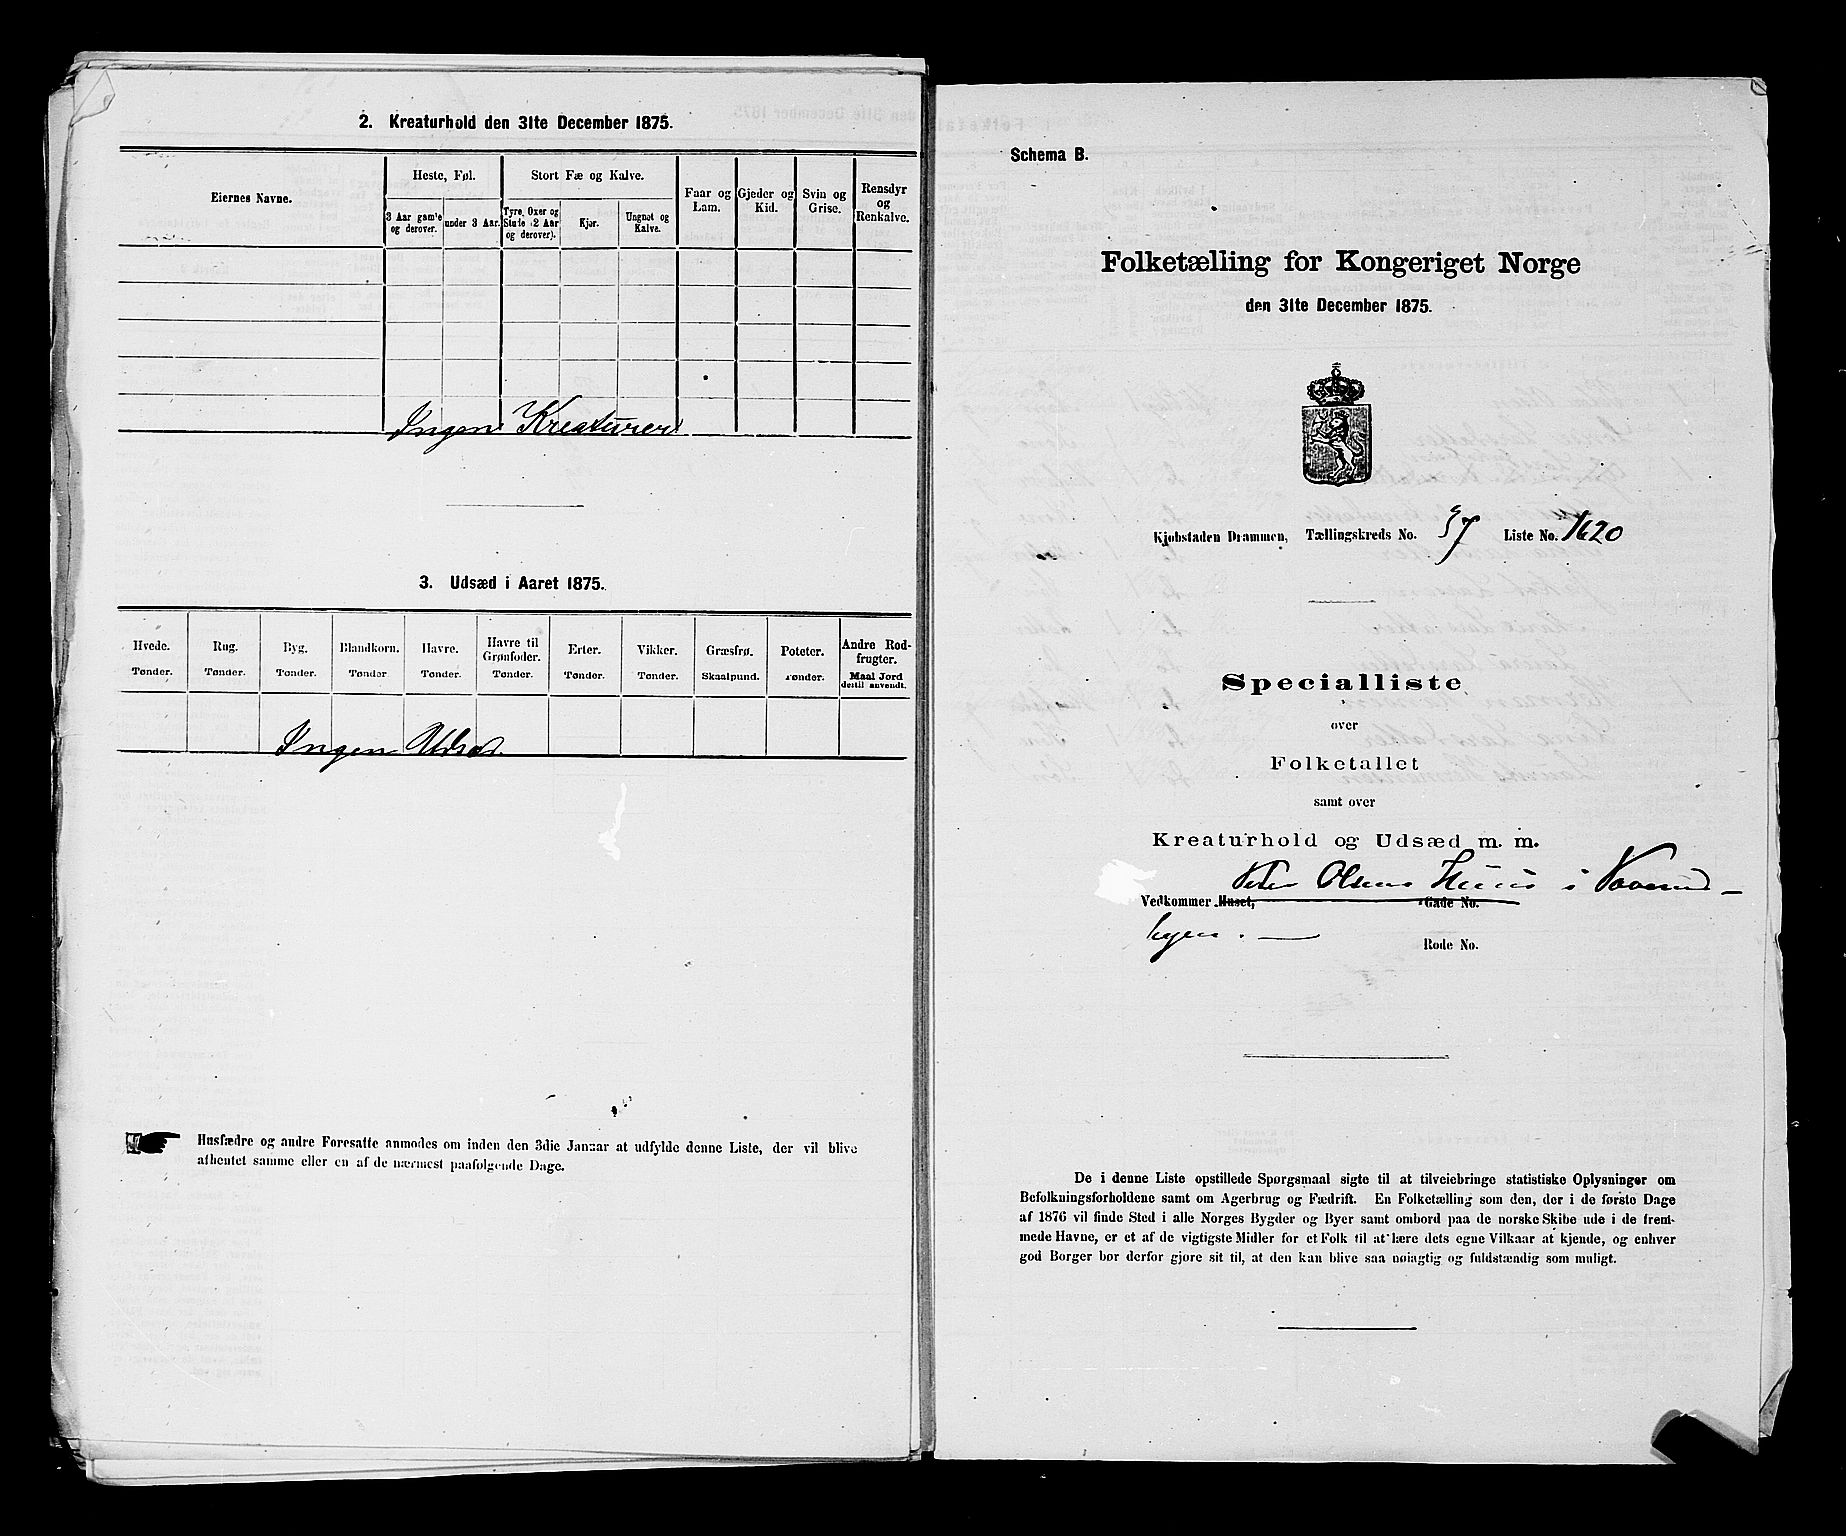 2. Kreaturhold den 31te December 1875.
Eiernes Navne.
Heste, Føl.
Stort Fæ og Kalve.
Faar og Lam.
Gjeder og Kid.
Svin og Grise.
Rensdyr og Renkalve.
3 Aar gam'e og derover.
under 3 Aar.
Tyre, Oxer og Stude (2 Aar og derover).
Kjør.
Ungnøt og Kalve.
Ingen Kreaturer
3. Udsæd i Aaret 1875.
Hvede. Rug. Byg. Blandkorn. Havre. Havre til Grønfoder. Erter. Vikker. Græsfrø. Poteter. Andre Rodfrugter.
Tønder. Tønder. Tønder. Tønder Tønder. Tønder. Tønder. Tønder. Skaalpund. Tønder. Maal Jord dertil anvendt.
Ingen Udsæd.
Husfædre og andre Foresatte anmodes om inden den 3die Januar at udfylde denne Liste, der vil blive
afhentet samme eller en af de nærmest paafølgende Dage.
Schema B.
Folketælling for Kongeriget Norge
den 31te December 1875.
Kjøbstaden Drammen, Tællingskreds No. 37 Liste No. 1620
Specialliste
over
Folketallet
samt over
Kreaturhold og Udsæd m. m.
Peder Olsens Huus i
Vedkommer Huset, Gade No.
byen.
Rode No.
De i denne Liste opstillede Spørgsmaal sigte til at tilveiebringe statistiske Oplysninger om
Befolkningsforholdene samt om Agerbrug og Fædrift. En Folketælling som den, der i de første Dage
af 1876 vil finde Sted i alle Norges Bygder og Byer samt ombord paa de norske Skibe ude i de frem-
mede Havne, er et af de vigtigste Midler for et Folk til at lære dets egne Vilkaar at kjende, og enhver
god Borger bør derfor gjøre sit til, at den kan blive saa nøiagtig og fuldstændig som muligt.